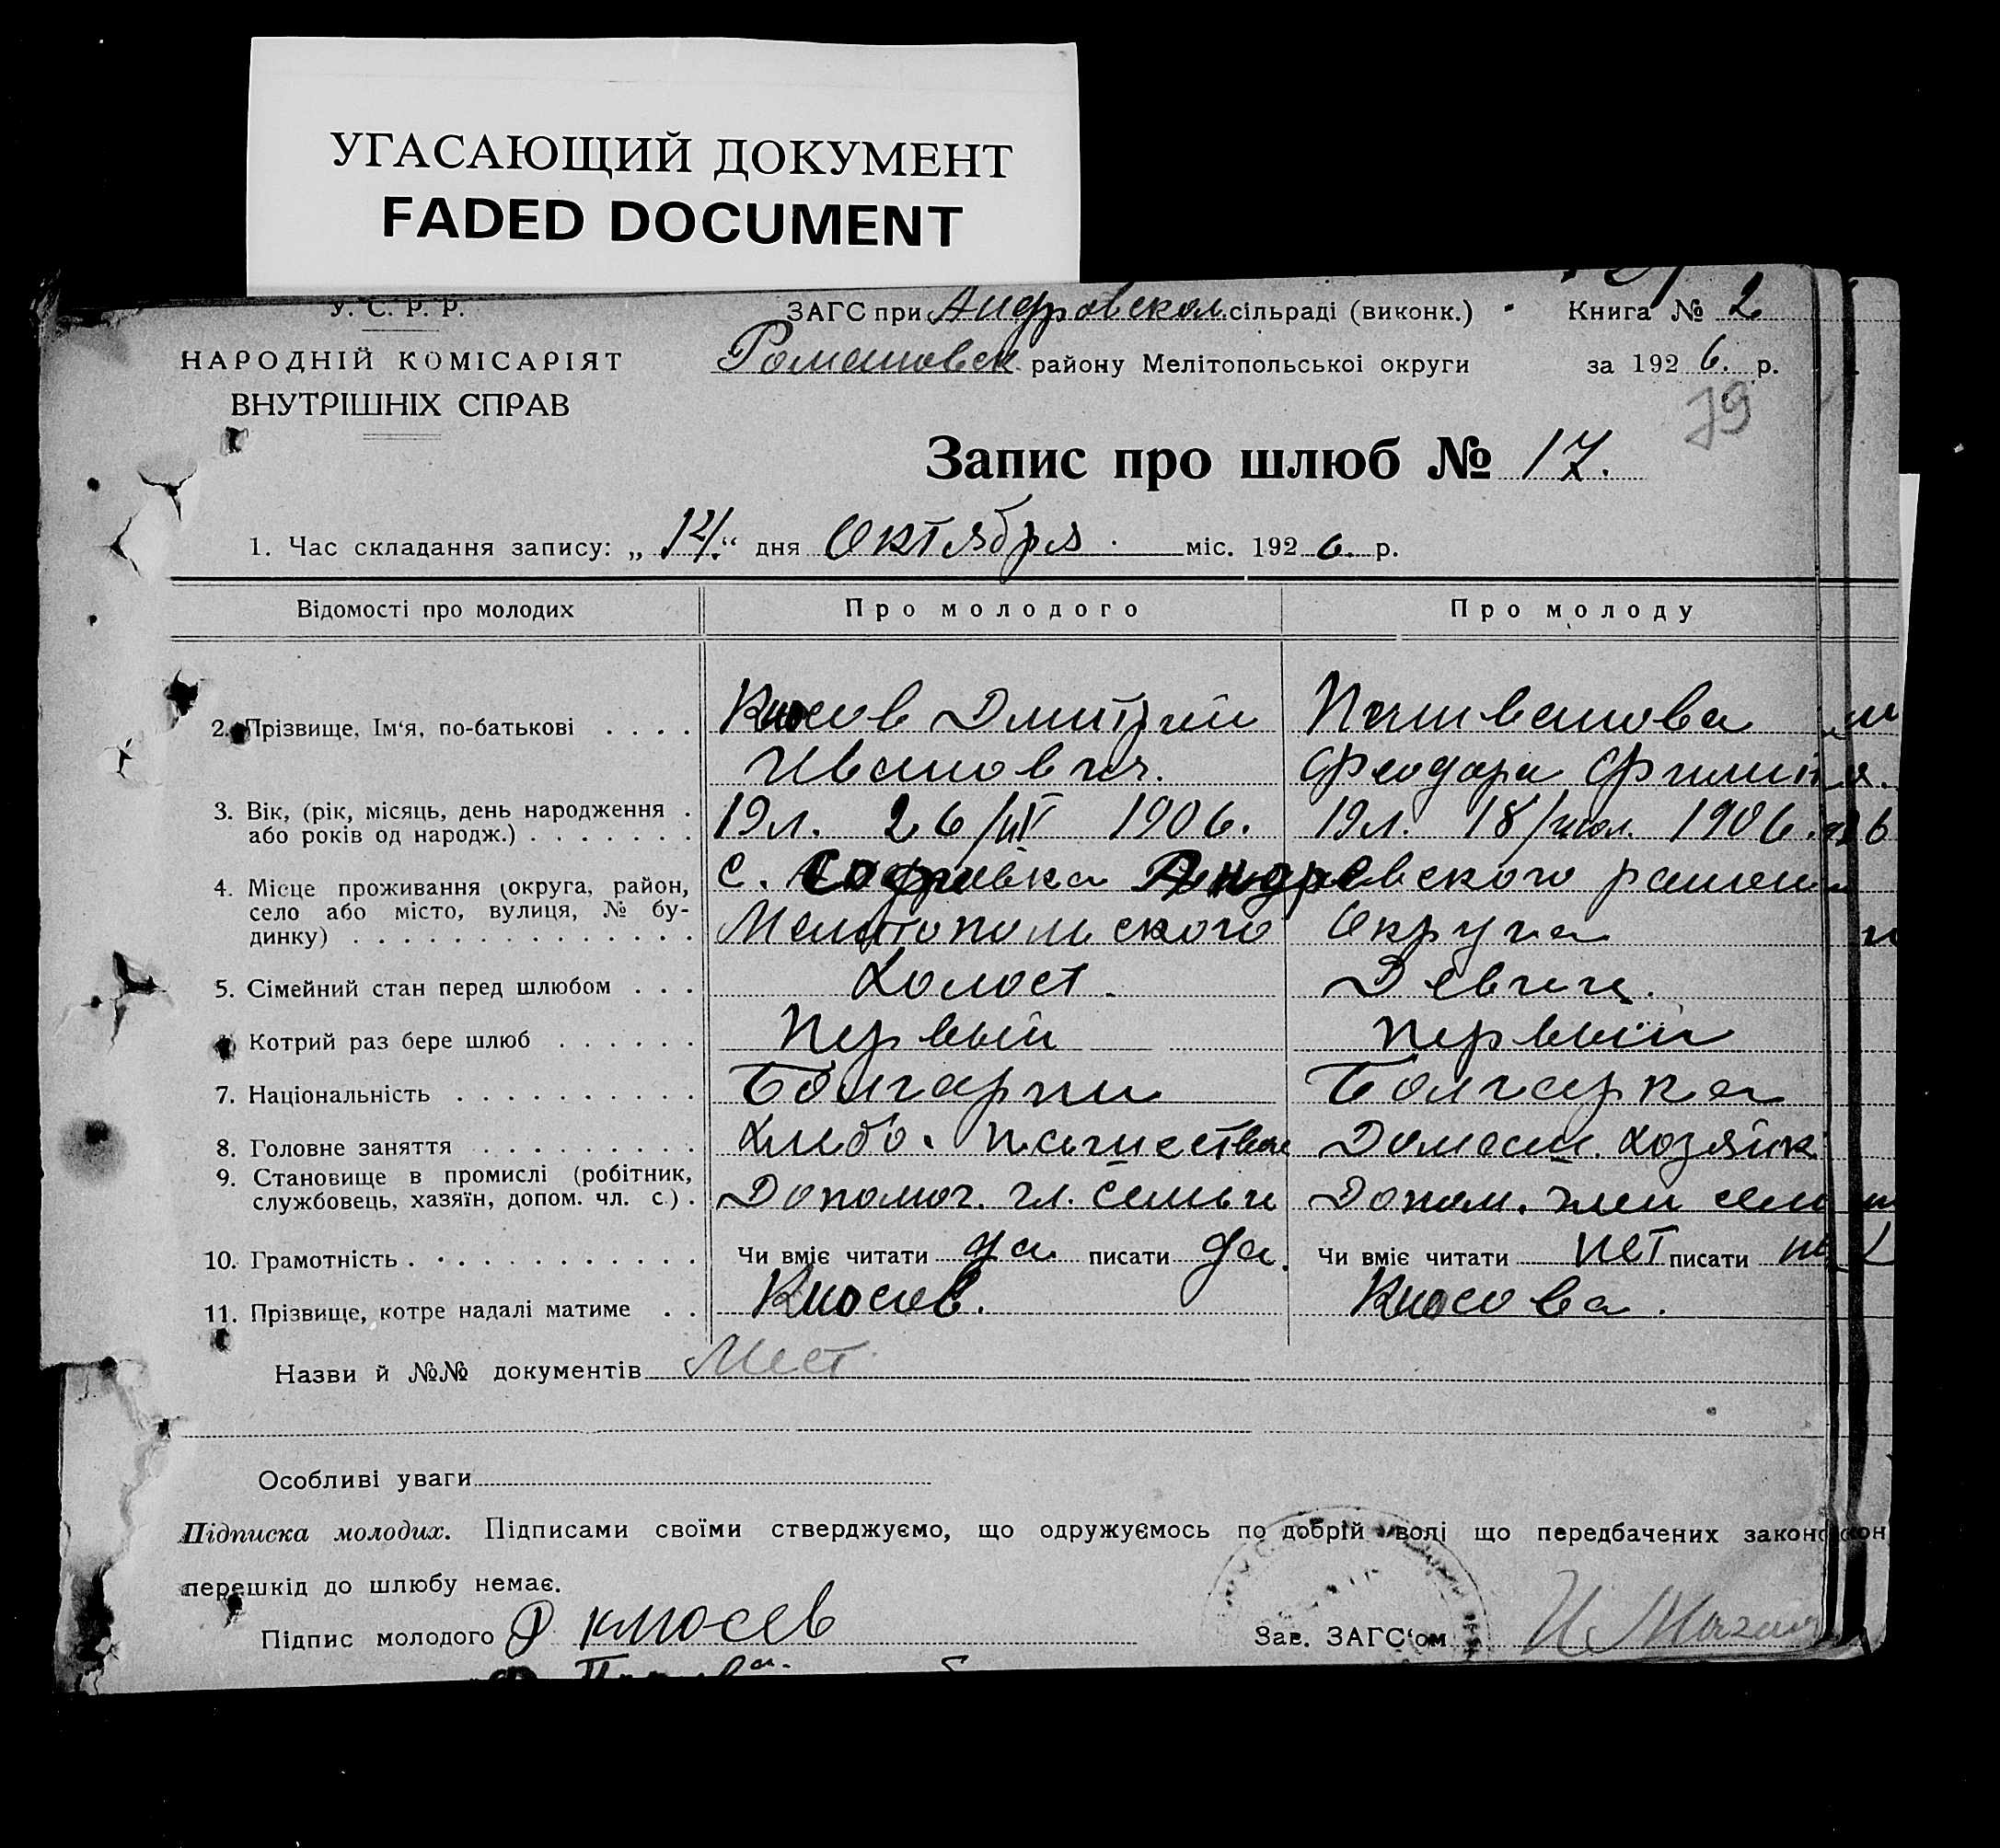 УГАСАЮЩИЙ ДОКУМЕНТ
FADED DOCUMENT
У. С. Р. Р.
НАРОДНІЙ КОМІСАРІЯТ
ВНУТРІШНІХ СПРАВ
ЗАГС при Андровском сільраді (виконк.)
Романовск району Мелітопольської округи
Книга № 2
за 1926. р.
79
Запис про шлюб № 17.
1. Час складання запису: „14.“ дня Октября. міс. 1926. р.
Відомості про молодих
Про молодого
Про молоду
2. Прізвище, Ім‘я, по-батькові . . . . Кюсов Дмитрий Феодора
Иванович.
3. Вік, (рік, місяць, день народження . 19л. 26/IV 1906. 19л. 18/июл. 1906.
або років од народж.) . . . . . . .
4. Місце проживання (округа, район, с. Софиевка Андревского
село або місто, вулиця, № бу- Мелитопольского Округа
динку) . . . . . . . . . . . . . .
5. Сімейний стан перед шлюбом . . . Холост. Девиц.
Котрий раз бере шлюб . . . . . . Первый Первый
7. Національність . . . . . . . . . . Болгарин Болгарка
8. Головне заняття . . . . . . . . . Хлебопашество Домашн. Хозяйк
9. Становище в промислі (робітник,
службовець, хазяїн, допом. чл. с.) . Допомог. чл. семьи Допом. член сем
10. Грамотність . . . . . . . . . . . . Чи вміє читати да писати да. Чи вміє читати нет писати
11. Прізвище, котре надалі матиме . . Кюсов. Кюсова.
Назви й №№ документів
Особливі уваги
Підписка молодих. Підписами своїми стверджуємо, що одружуємось по добрій волі що передбачених законо
перешкід до шлюбу немає.
Підпис молодого Д кюсев
Зав. ЗАГС‘ом